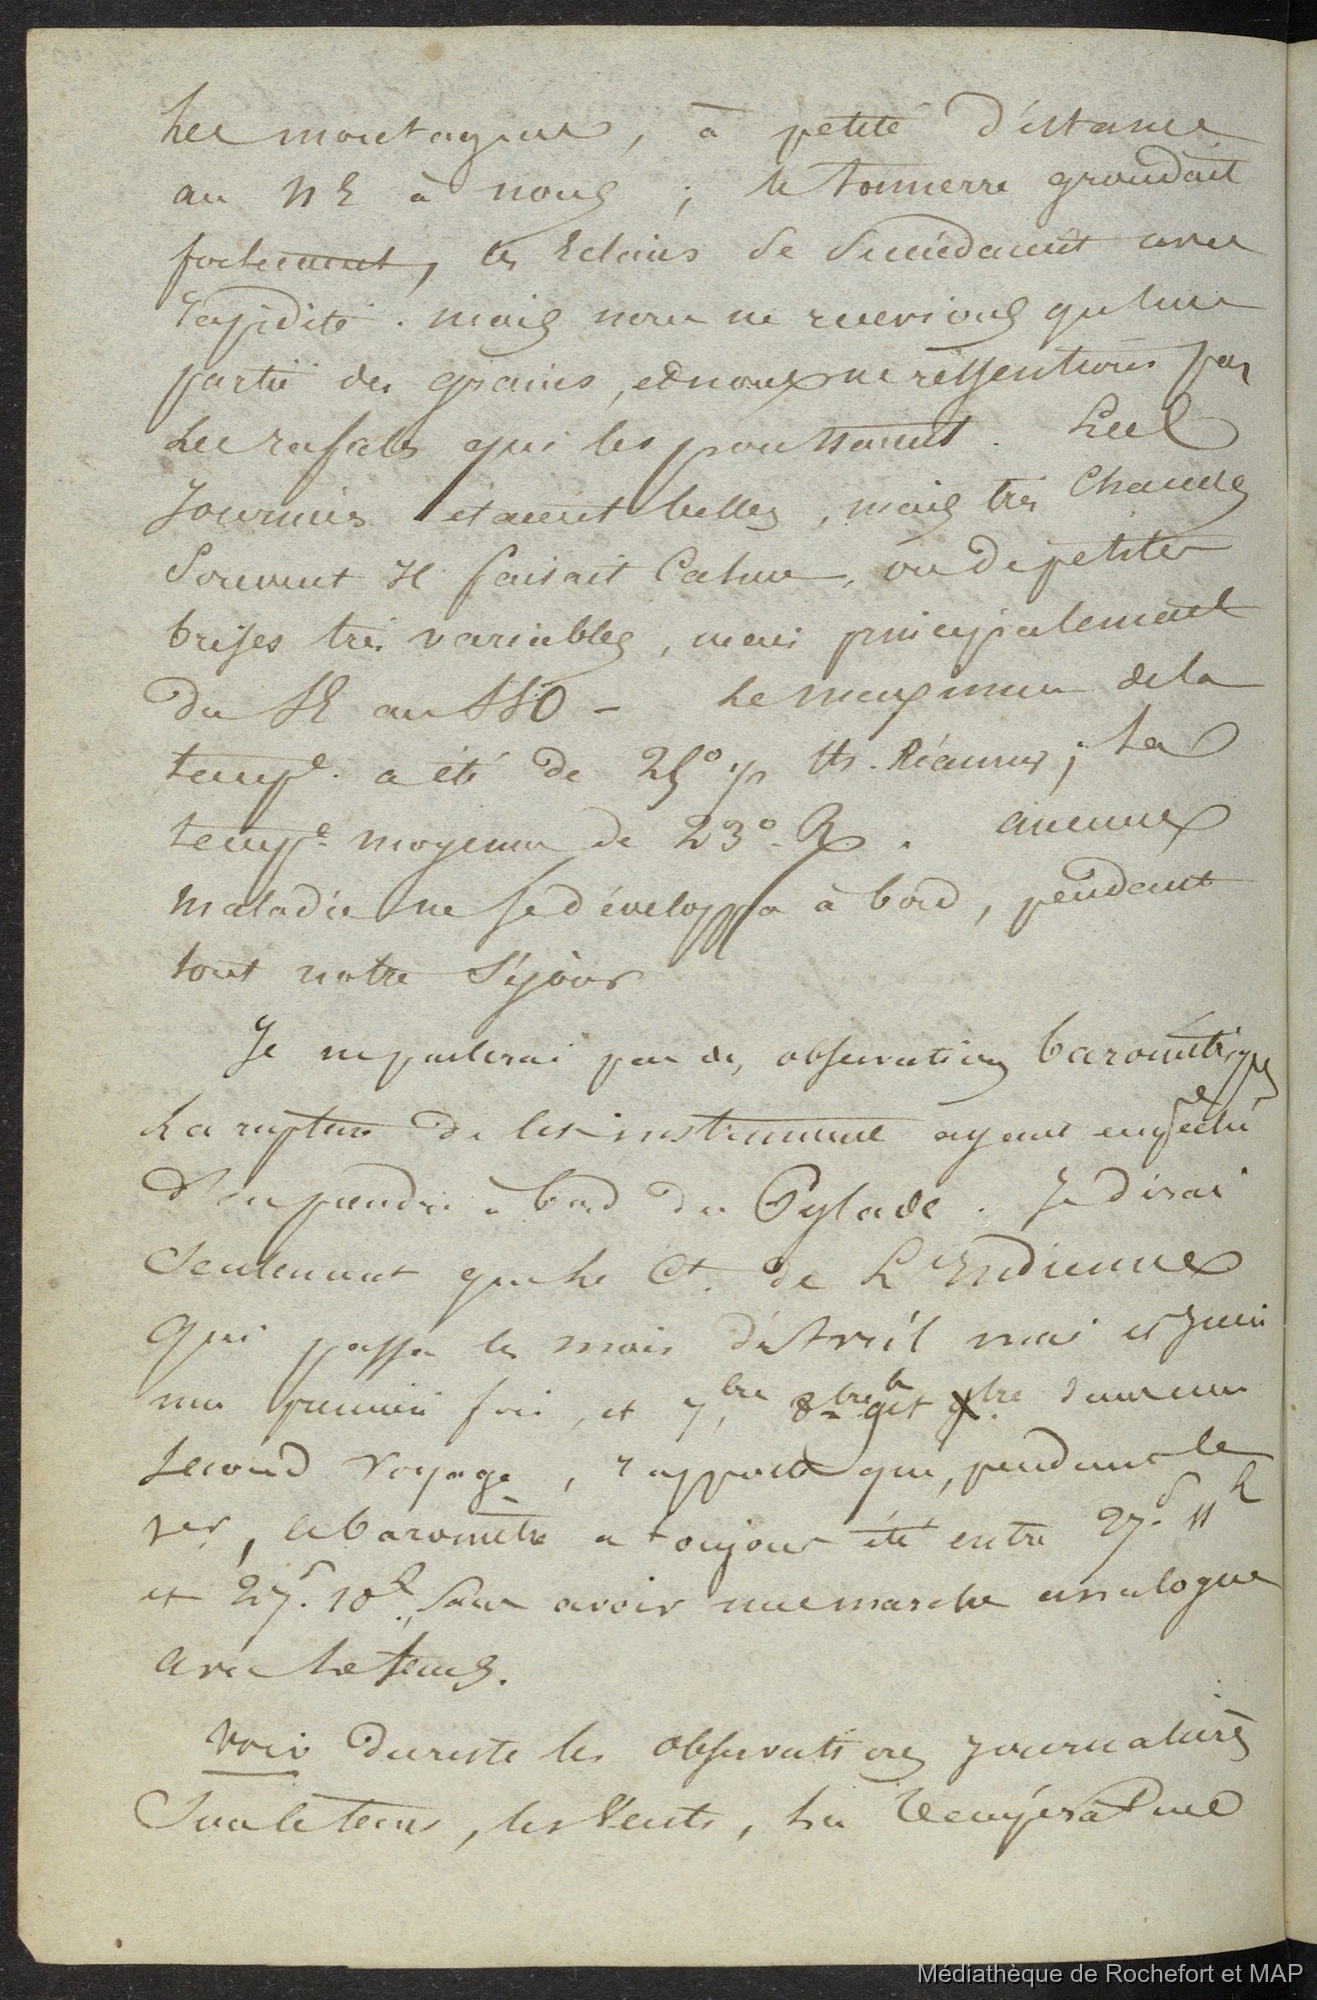 les montagnes, à petite distance
au NE à nous ; le tonnerre grondait
fortement, les Eclairs se succédaient avec
rapidité. mais nous ne recevions qu'une
partie des grains, et nous ne ressentions pas
les rafales qui les poussaient. Les
Journées étaient belles, mais très Chaudes
Souvent Il faisait Calme, ou de petites
brises très variables, mais principalement
du SE au SSO - Le maximum de la
tempe. a été de 25° ½ th. Réaumur ; La
tempe. moyenne de 23° R. aucune
maladie ne se développa à bord, pendant
tout notre Séjour
Je ne parlerai pas des observations barométriques
La rupture de les instrumens ayant empêché
d'en prendre à bord du Pylade. Je dirai
Seulement que le Ct. de L'Indienne
qui passa les mois d'Avril mai et Juin
une premiere fois, et 7bre, 8bre et 9bre dans un
Second Voyage, rapporte que, pendant le
1er, le baromètre a toujours été entre 27.p 11l
et 27p. 10l, Sans avoir une marche analogue
avec le tems.
Voir du reste les observations Journalières
Sur le tems, les Vents, La Température
Médiathèque de Rochefort et MAP